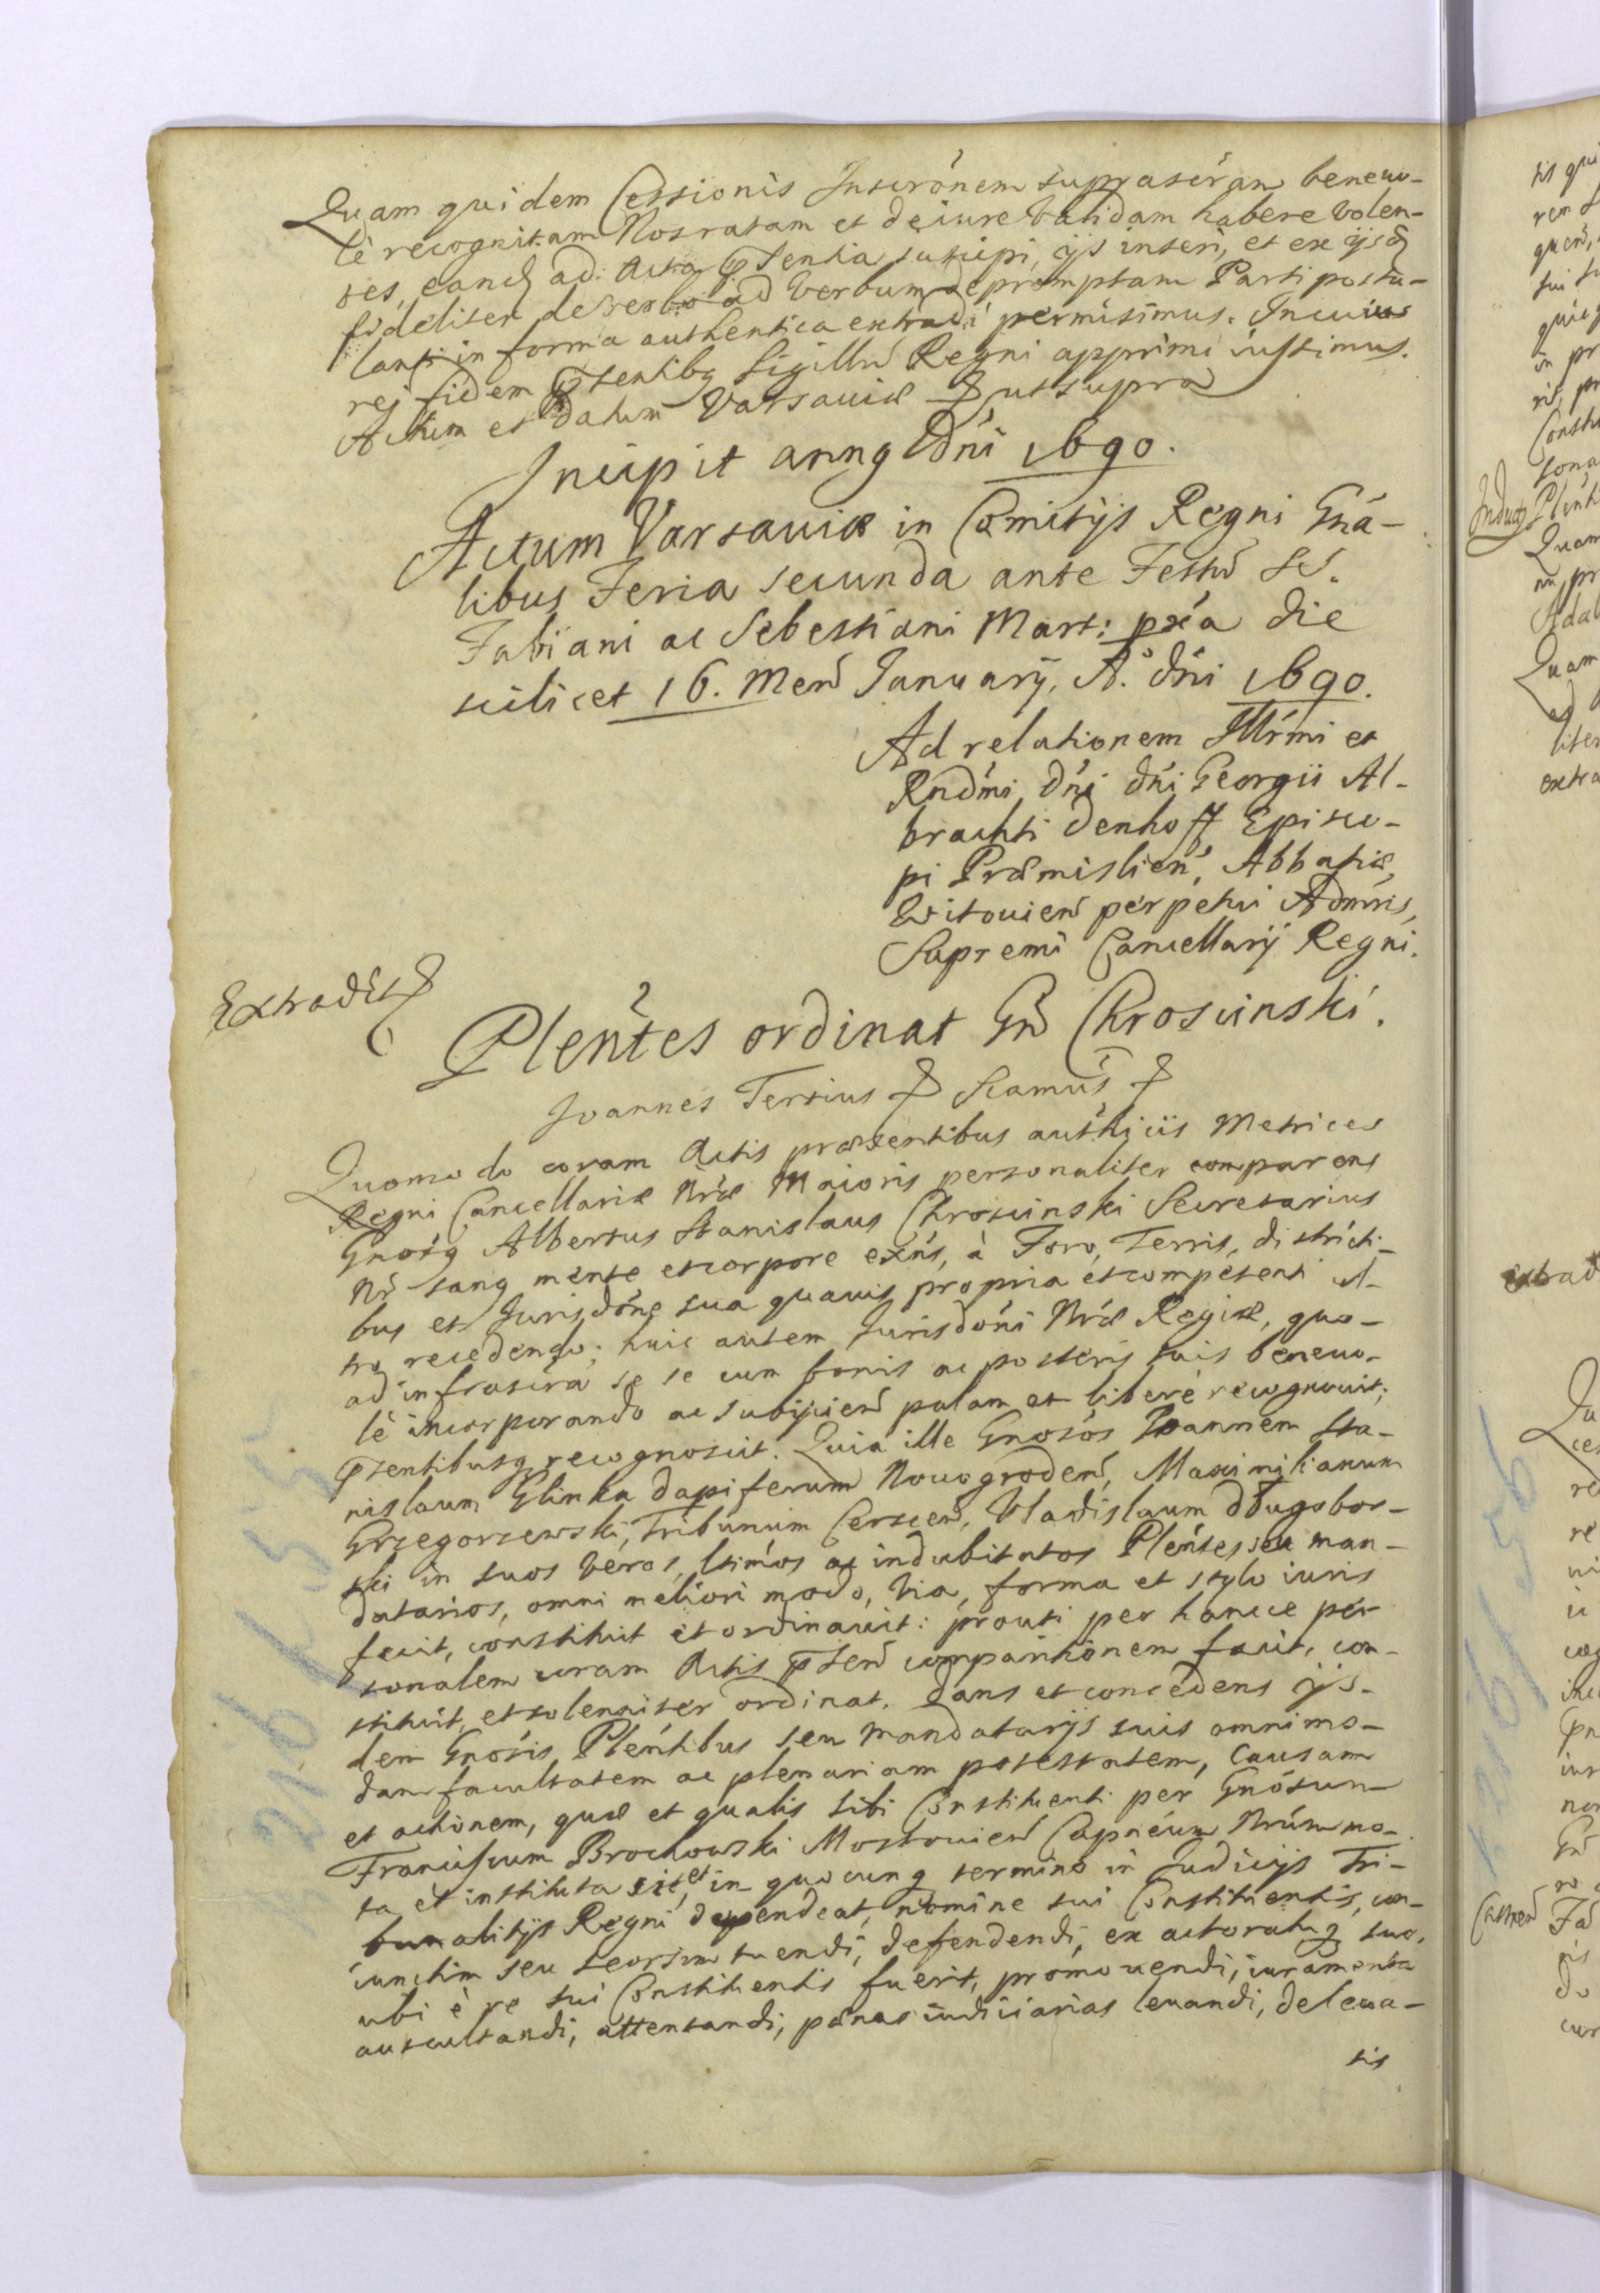 Quam quidem Cessionis Inscrónem suprascram beneuo-
lè recognitam Nos ratam et de iure validam habere volen-
tes, eandq ad Acta pntentia suscipi, ijs inseri, et ex ijsd
fideliter de verbo ad verbum depromptam Parti postu-
lanti in forma authentica extradi permisimus. In cuius
rej fidem pntentibq Sigillu Regni apprimi iussimus.
Actum et datum Varsauiæ & ut supra
Incipit annq Dni 1690.
Actum Varsauiæ in Comitijs Regni Gná-
libus Feria secunda ante Festu Sts.
Fabiani ac Sebestiani Mart: pxa die
scilicet 16. Men January, A.º dni 1690.
Ad relationem Illrmi et
Rndmi Dni Dni Georgii Al-
brachti Denhoff Episco-
pi Præmislien, Abbatiæ
Witouien perpetui Admris,
Supremi Cancellarij Regni.
Extradit &
Plentes ordinat Gn Chroscinski.
Joannes Tertius & Scamus &
Quomodo coram Actis præsentibus authcijs Metrices
Regni Cancellariæ Nræ Maioris personaliter comparens
Gnosq Albertus Stanislaus Chroscinski Secretarius
Nr sanq mente et corpore exns, à Foro, Terris, districti-
bus et Jurisdóne sua quauis propria et competenti ul-
tro recedendo; huic autem Jurisdóni Nræ Regiæ, quo-
ad infrascra se se cum bonis ac posteris suis beneuo-
lè incorporando ac subijcien palam et liberè recognouit;
pntentibusq recognoscit. Quia ille Gnosós Joannem Sta-
nislaum Glinka dapiferum Nouogroden, Maximilianum
Grzegorzewski, Tribunum Cerscen, Vladislaum Długobor-
ski in suos veros, ltimos ac indubitatos Plentes seu man-
datarios, omni meliori modo, via, forma et stylo iuris
fecit, constituit et ordinauit: prouti per hance per-
sonalem coram Actis pnten comparitiónem facit, con-
stituit, et solenniter ordinat. Dans et concedens ijs-
dem Gnosis Plentibus seu Mandatarijs suis omnimo-
dam facultatem ac plenariam potestatem, Causam
et actionem, quæ et qualis sibi Constituenti per Gnosum
Franciscum Brochowski Mostouien Capneum Nrúm mo-
ta et instituta sit, et in quocunq termino in Judicijs Tri-
bunalitijs Regni dependeat, nomine sui Constituentis, con-
iunctim seu seorsim tuendi, defendendi, ex actoratuq suo,
ubi è re sui Constituentis fuerit, promouendi, iuramenta
auscultandi, attentandi, poenas iudiciarias leuandi, deleua-
tis